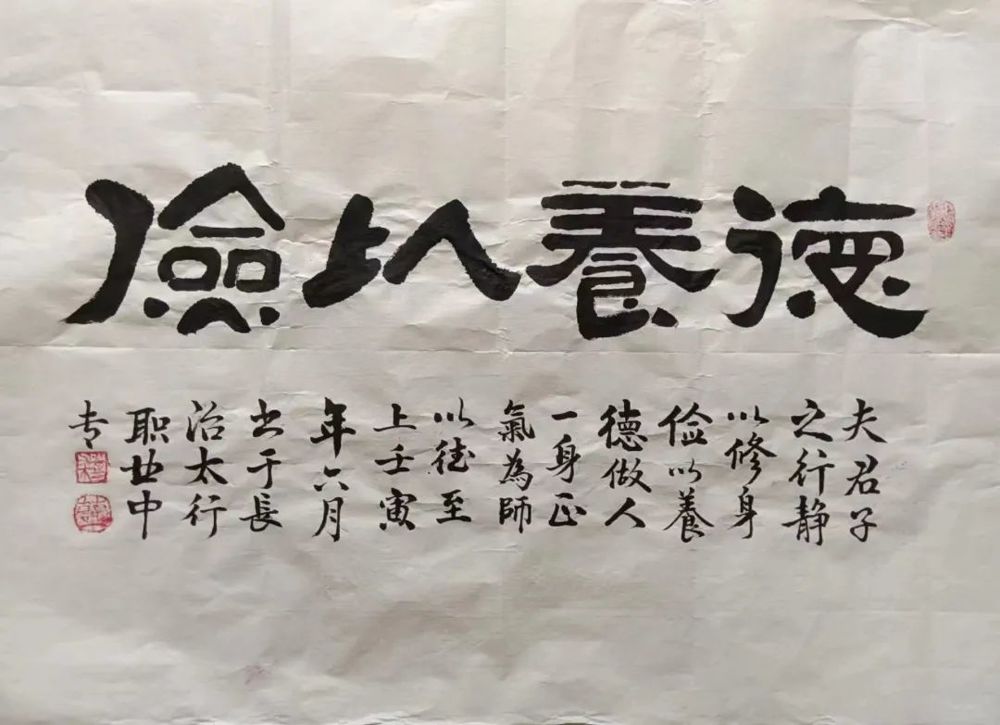 儉以養德
夫君子
之行静
以修身
俭以養
德做人
一身正
氣為師
以德至
上壬寅
年六月
书于長
治太行
职业中
专